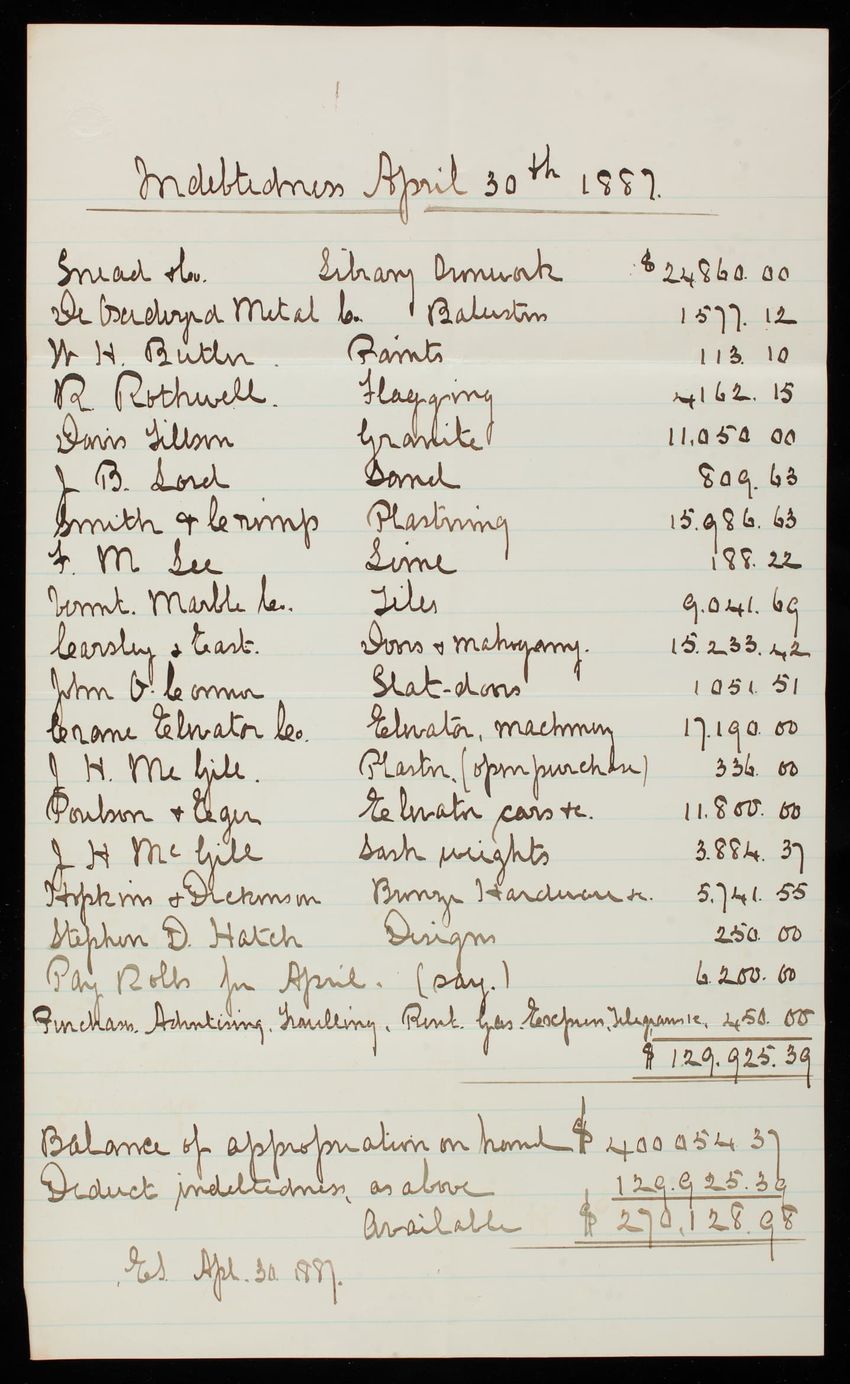 Indebtedness April 30th 1887.
Snead & Co. Library Ironwork $24860.00
Metal Co. Balusters 1577.12
W H. Butler. Paints 113.10
R. Rothwell. Flagging 4162.15
Davis Tillson Granite 11,050 00
J B. Lord Sand 809.63
Smith & Crimp Plastering 15.986.63
F. M Lee Lime 188.22
Vermt. Marble Co. Tiles 9.041.69
Cearsley & East. Doors & Mahogany. 15.233.42
John O'Connor Slat-doors 1051.51
Crane Elevator Co. Elevator, machinery 17.190.00
J H. Mc Gill. Plaster. (open purchase) 336.00
Poulson & Eger Elevator cars &c. 11.800.00
J H McGill Sash weights 3.884.37
Hopkins & Dickinson Bronze Hardware &c. 5.741.55
Stephen D. Hatch Designs 250.00
Pay Rolls for April. (say.) 6.200.00
Purchases. Advertising. Travelling. Rent. Gas. Express, Telegrams &c. 450.00
$129.925.39
Balance of appropriation on hand $400054.37
Deduct indebtedness, as above 129.925.39
Available $270,128.98
Apl. 30. 1887.